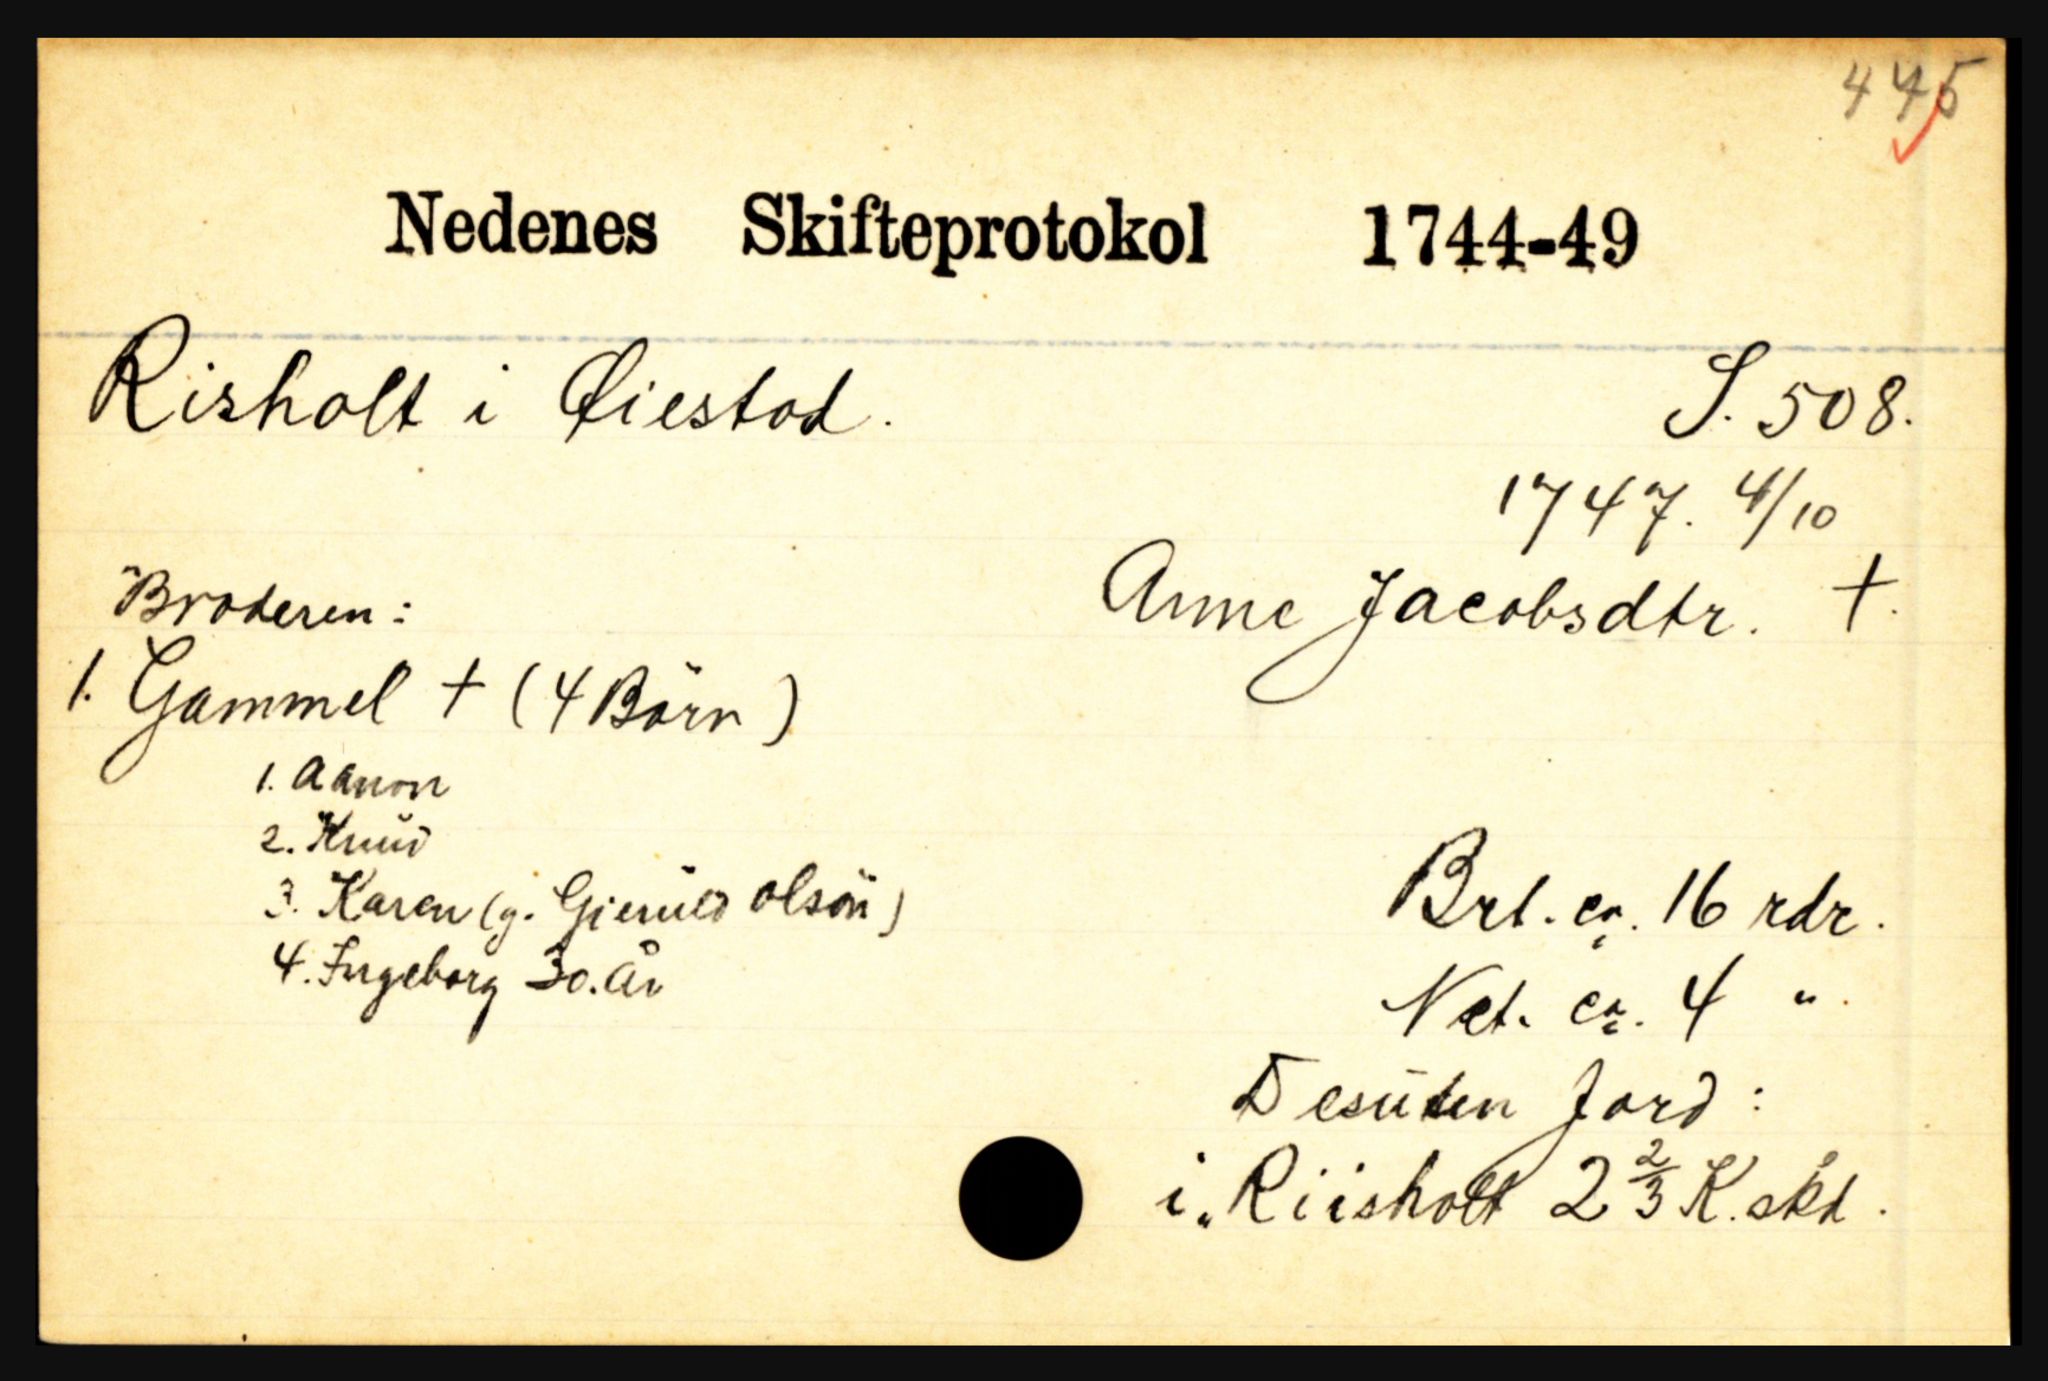 445
Nedenes Skifteprotokol 1744-49
Risholt i Øiestad. S. 508.
1747. 4/10
Anne Jacobsdtr. †.
Broderen:
1. Gammel † (4 Börn)
1. Aanon
2. Knud
3. Karen (g. Gieruld Olsön)
4. Ingeborg 30. År
Brt. ca. 16 rdr.
Net. ca. 4 "
Desuten Jord:
i Riisholt 2 2/3 K. skd.